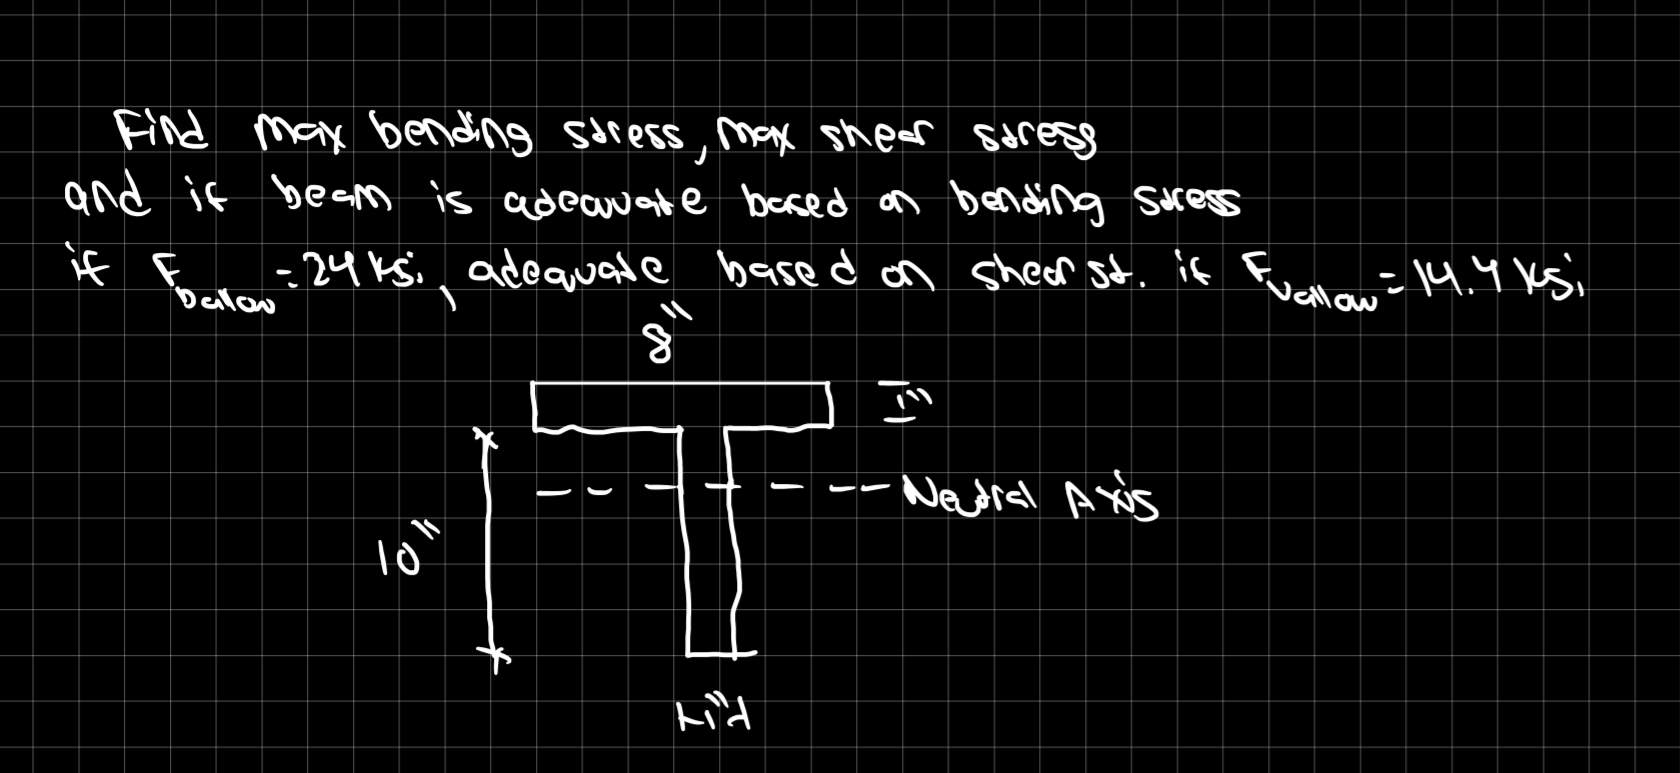 Find max bending stress, max shear stress
and if beam is adequate based on bending stress
if F ballow = 24 ksi, adequate based on shear st. if F vallow = 14.4 ksi
8"
1"
Neutral Axis
10"
1"